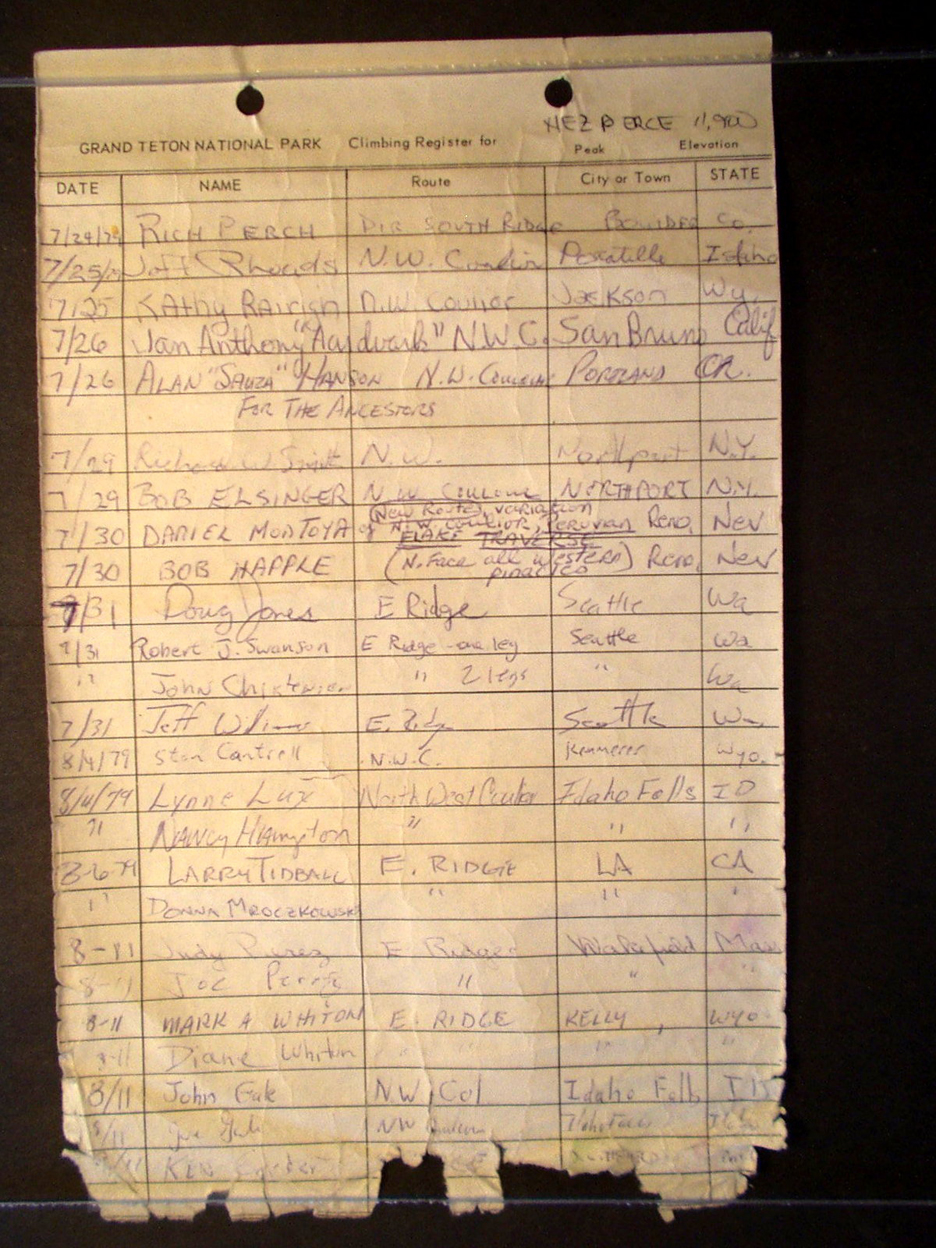 NEZ PERCE 11,900
GRAND TETON NATIONAL PARK Climbing Register for Peak Elevation
DATE NAME Route City or Town STATE
7/24/79 RICH PERCH DIR SOUTH RIDGE BOULDER CO.
7/25/79 Jeff Rhoads N.W. Pocatello Idaho
7/25 KATHY RAIRIGH N.W. Jackson Wy.
7/26 Jan Anthony "Aardvark" N.W.C. San Bruno Calif
7/26 ALAN "SAUZA" HANSON N.W. COULOIR PORTLAND OR.
FOR THE ANCESTORS
7/29 Richard W N.W. Northport N.Y.
7/29 BOB ELSINGER N.W. COULOIR NORTHPORT N.Y.
7/30 DANIEL MONTOYA (New Route, variation of N.W. coulior, PERUVIAN Reno, Nev
FLAKE TRAVERSE
7/30 BOB HAPPLE (N. Face all western pinacles) Reno, Nev
7/31 Doug Jones E Ridge Seattle Wa
7/31 Robert J. Swanson E Ridge - one leg Seattle Wa
" John " 2 legs " Wa
7/31 Jeff E. Ridge Seattle Wa
8/4/79 Stan Cantrell N.W.C. Kemmerer Wyo.
8/4/79 Lynne Lux North West Couloir Idaho Falls ID
" NANCY Hampton " " "
8-6-79 LARRY TIDBALL E. RIDGE LA CA
" DONNA MROCZKOWSKI " " "
8-11 Judy E Ridge Wakefield Mass
8-11 Joe " " "
8-11 MARK A WHITON E. RIDGE KELLY, WYO
8-11 Diane Whiton " " " "
8/11 John Gak N.W. Col Idaho Falls ID
8/11 NW Idaho Falls Idaho
KEN